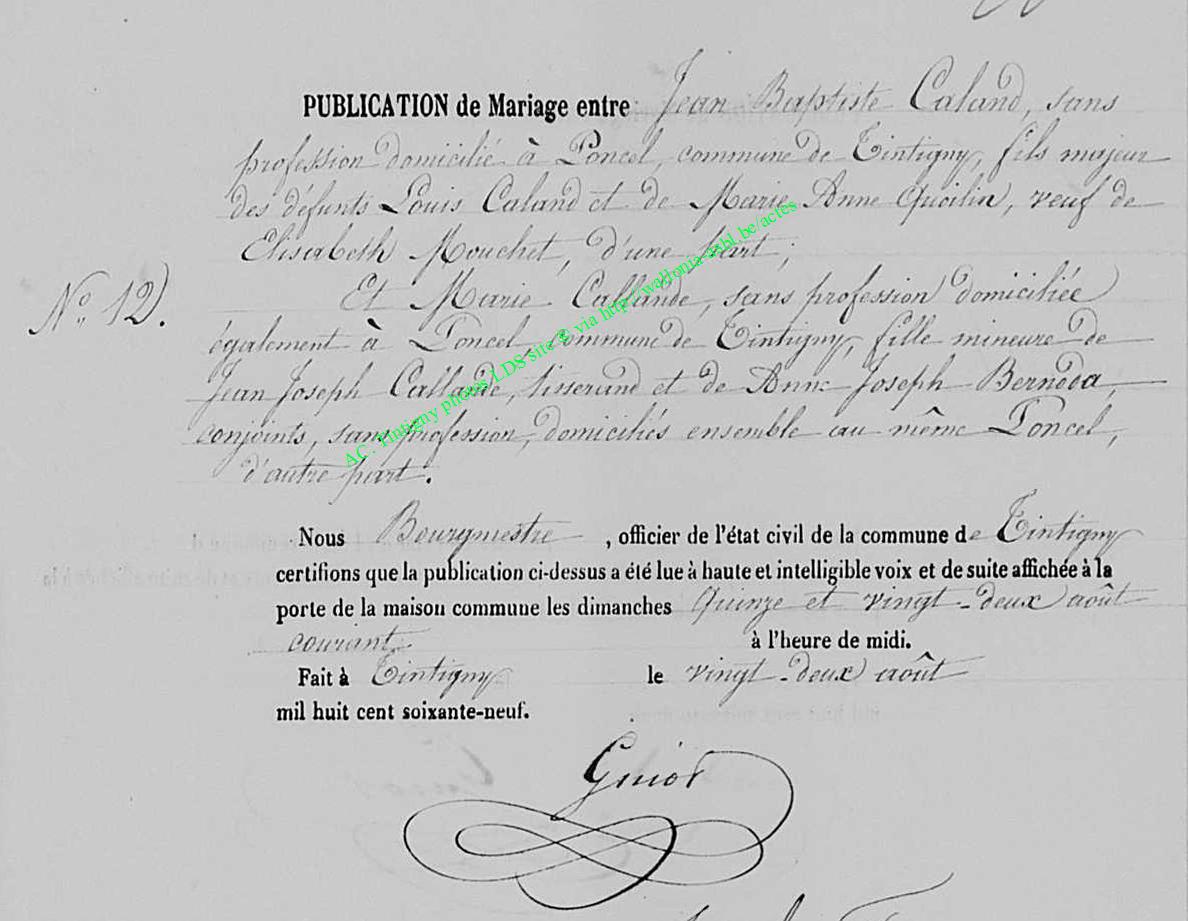 PUBLICATION de Mariage entre Jean Baptiste Caland, sans
profession domicilié à Poncel, commune de Tintigny, fils majeur
des défunts Louis Caland et de Marie Anne Quoilin, veuf de
Elisabeth Mouchet, d'une part;
N° 12.
Et Marie Callande, sans profession domiciliée
également à Poncel, commune de Tintigny, fille mineure de
Jean Joseph Callande, tisserand et de Anne Joseph Bernada,
conjoints, sans profession, domiciliés ensemble au même Poncel,
d'autre part.
AC. Tintigny photos LDS site © via http://wallonia-asbl.be/actes
Nous Bourgmestre, officier de l'état civil de la commune de Tintigny
certifions que la publication ci-dessus a été lue à haute et intelligible voix et de suite affichée à la
porte de la maison commune les dimanches Quinze et vingt-deux août
courant. à l'heure de midi.
Fait à Tintigny le vingt-deux août
mil huit cent soixante-neuf.
Guiot